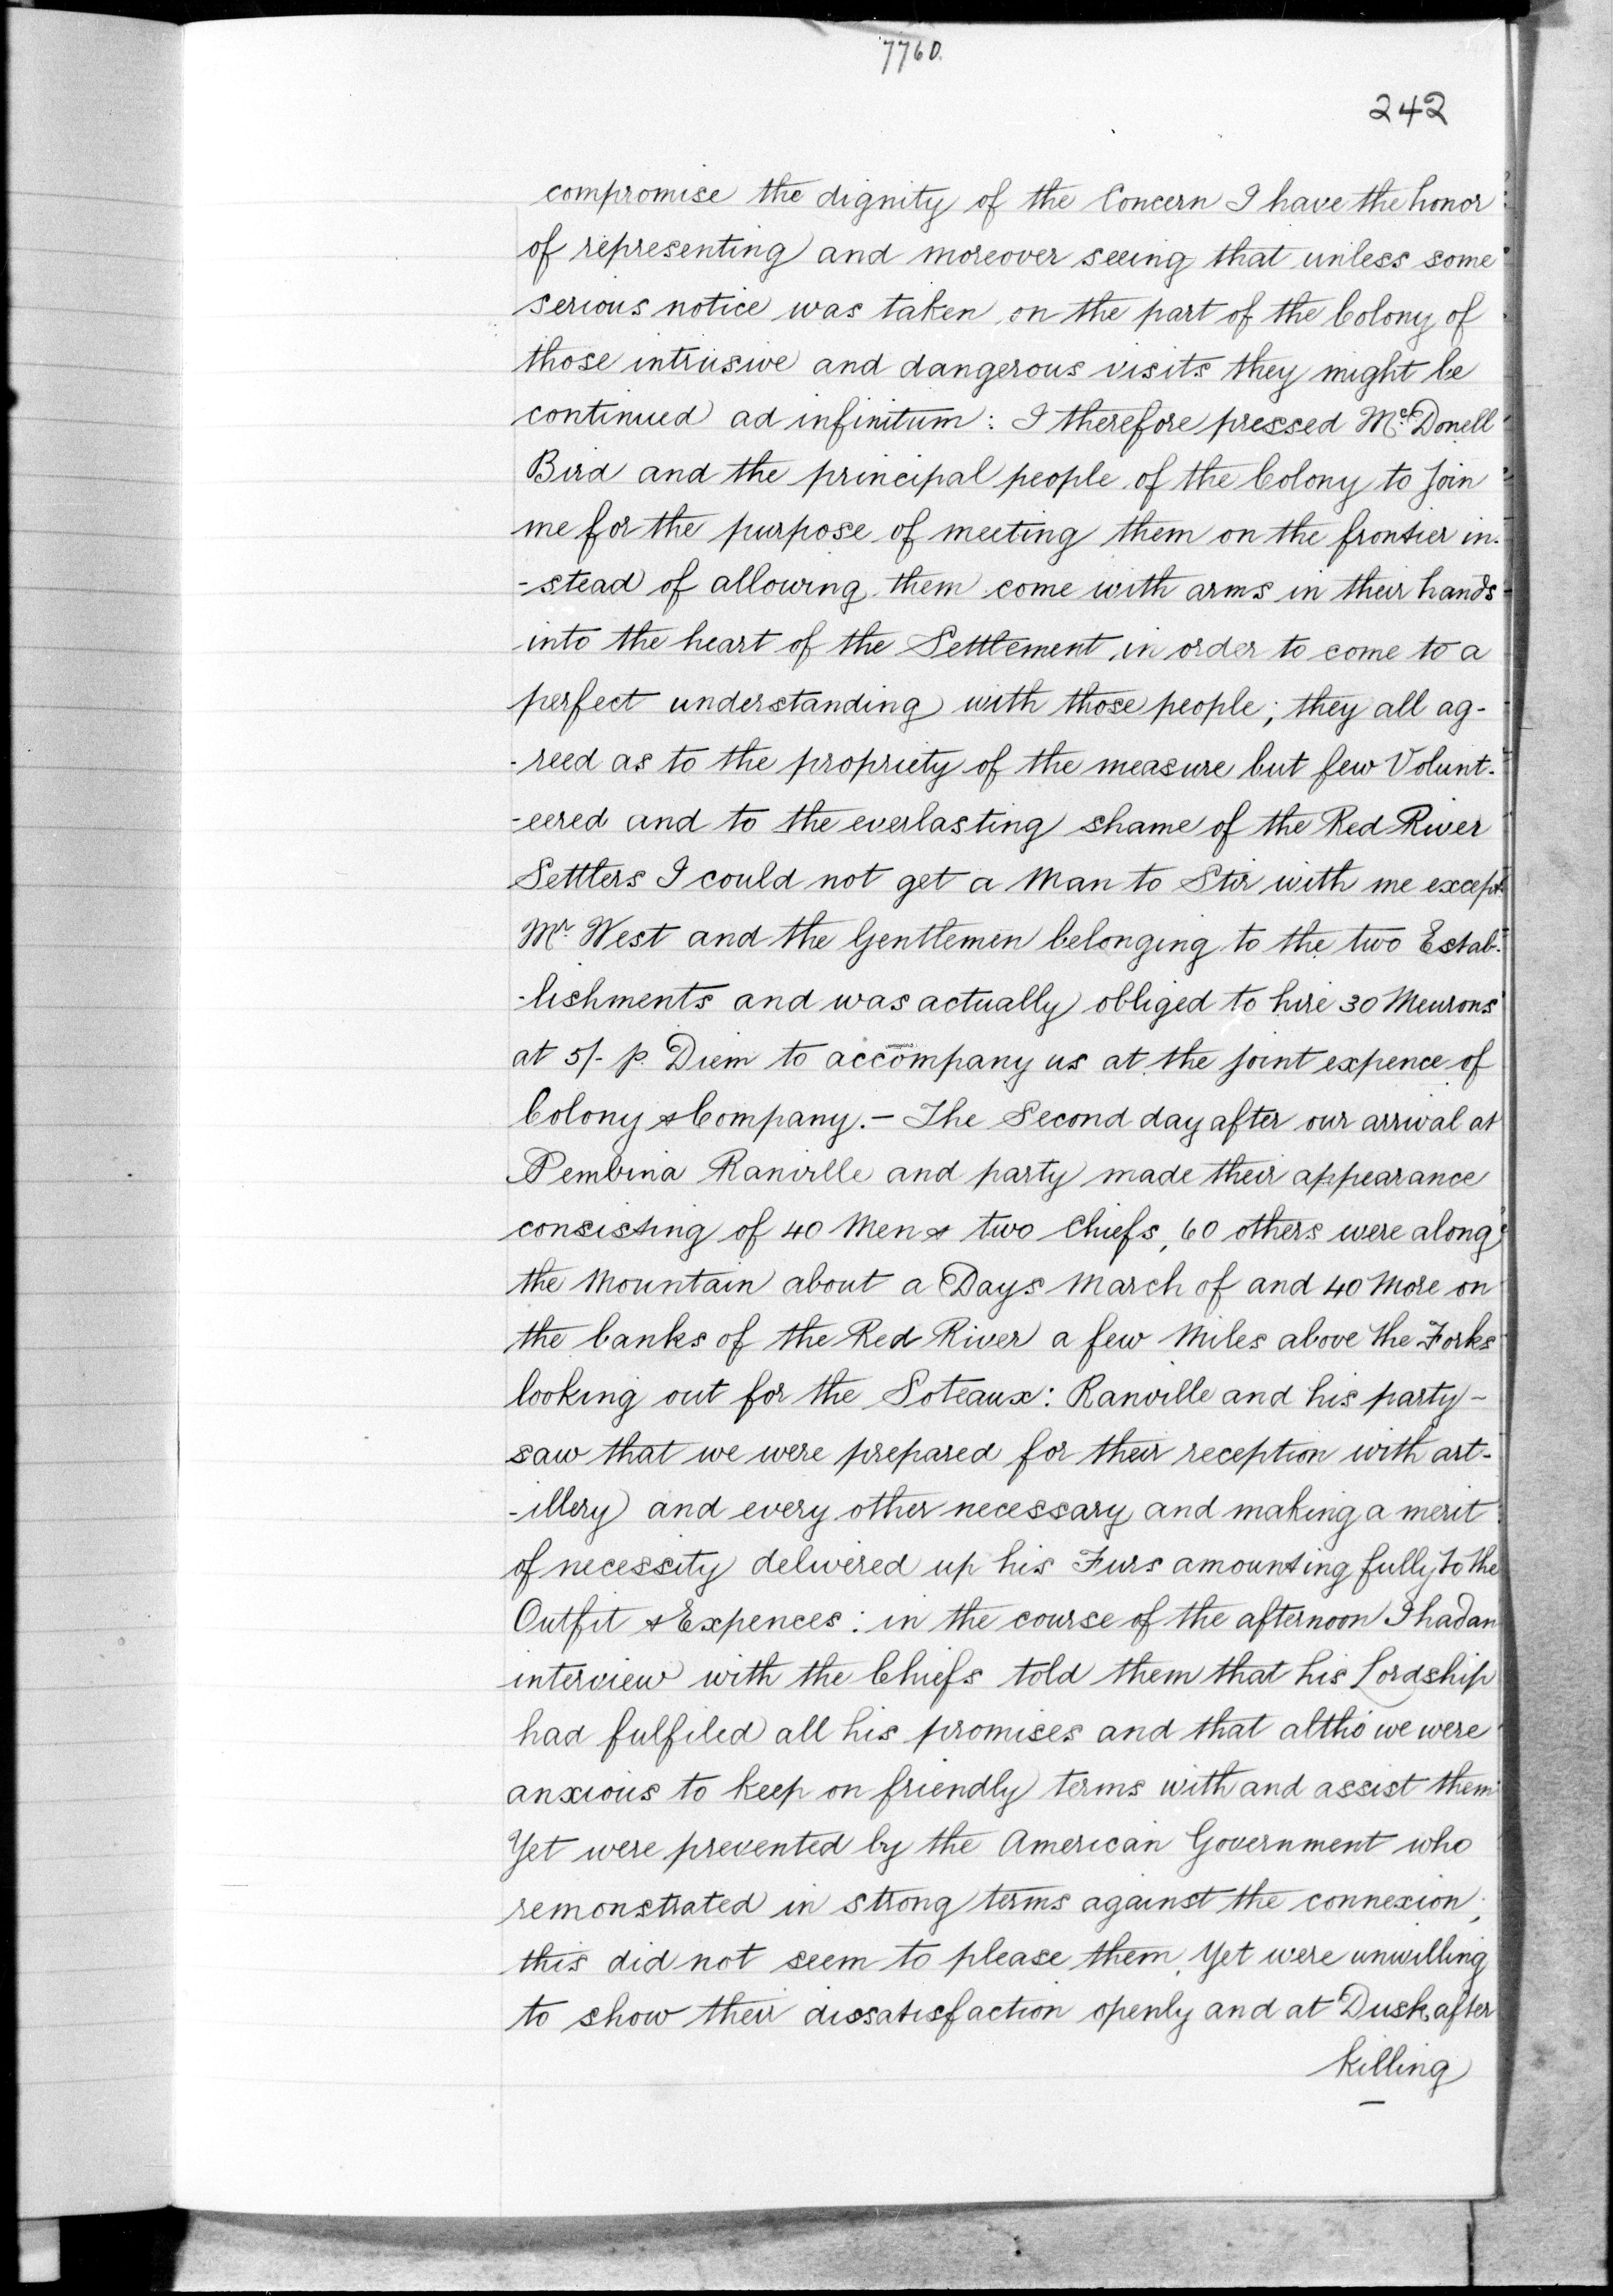 7760.
242
compromise the dignity of the Concern I have the honor
of representing and moreover seeing that unless some
serious notice was taken on the part of the Colony of
those intrusive and dangerous visits they might be
continued ad infinitum: I therefore pressed Mc.Donell
Bird and the principal people of the Colony to join
me for the purpose of meeting them on the frontier in-
-stead of allowing them come with arms in their hands
into the heart of the Settlement in order to come to a
perfect understanding with those people; they all ag-
-reed as to the propriety of the measure but few Volunt-
-eered and to the everlasting shame of the Red River
Settlers I could not get a Man to Stir with me except
Mr. West and the Gentlemen belonging to the two Estab-
-lishments and was actually obliged to hire 30 Meurons
at 5/- p. Diem to accompany us at the joint expence of
Colony & Company.- The Second day after our arrival at
Pembina Ranville and party made their appearance
consisting of 40 Men & two Chiefs, 60 others were along
the Mountain about a Days March of and 40 More on
the banks of the Red River a few Miles above the Forks
looking out for the Soteaux: Ranville and his party -
saw that we were prepared for their reception with art-
-illery and every other necessary and making a merit
of necessity delivered up his Furs amounting fully to the
Outfit & Expences: in the course of the afternoon I had an
interview with the Chiefs told them that his Lordship
had fulfiled all his promises and that altho we were
anxious to keep on friendly terms with and assist them
Yet were prevented by the American Government who
remonstrated in strong terms against the connexion;
this did not seem to please them, Yet were unwilling
to show their dissatisfaction openly and at Dusk after
killing